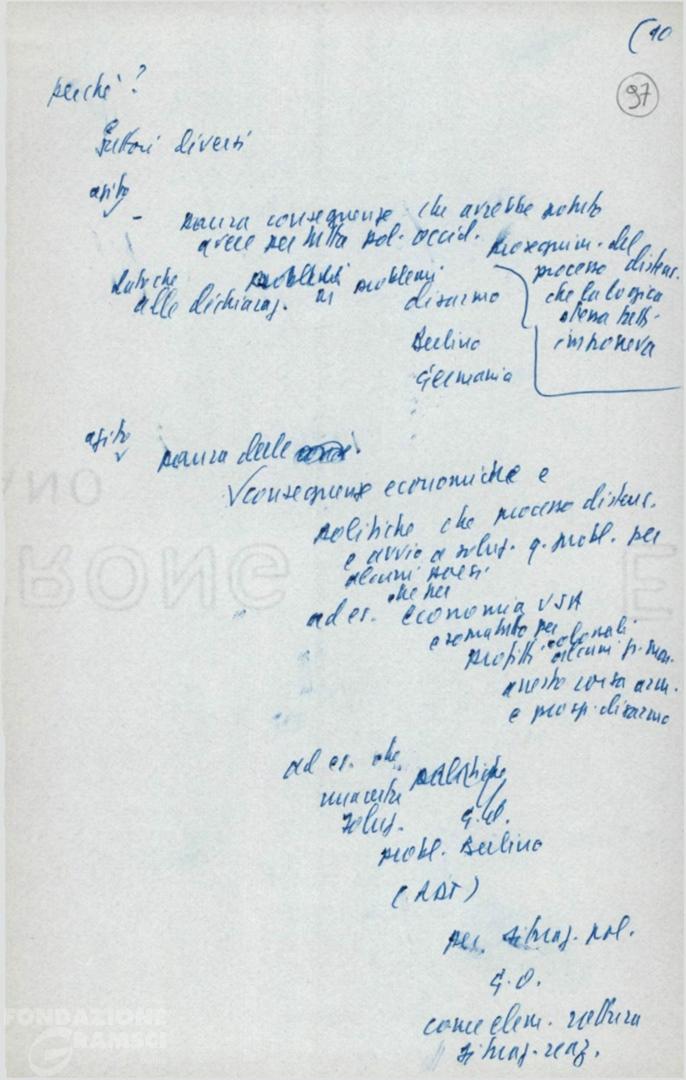 (10
97
perché?
Fattori diversi
agito
- paura conseguenze che avrebbe potuto
avere per tutta pol. occid.
dato che problemi
alle dichiaraz. problemi
disarmo
Berlino
Germania
proseguim. del
processo distens.
che la logica
stessa
imponeva
agito
paura delle
conseguenze economiche e
politiche che processo distens.
e avvio a soluz. q. probl. per
alcuni paesi
che per
ad es. economia USA
e soprattutto per
profitti colonali
alcuni
arresto corsa arm.
e prosp. disarmo
ad es. che politiche
una certa
soluz. G.O.
probl. Berlino
(RDT)
per situaz. pol.
G.O.
come elem. rottura
situaz. reaz.
FONDAZIONE
GRAMSCI